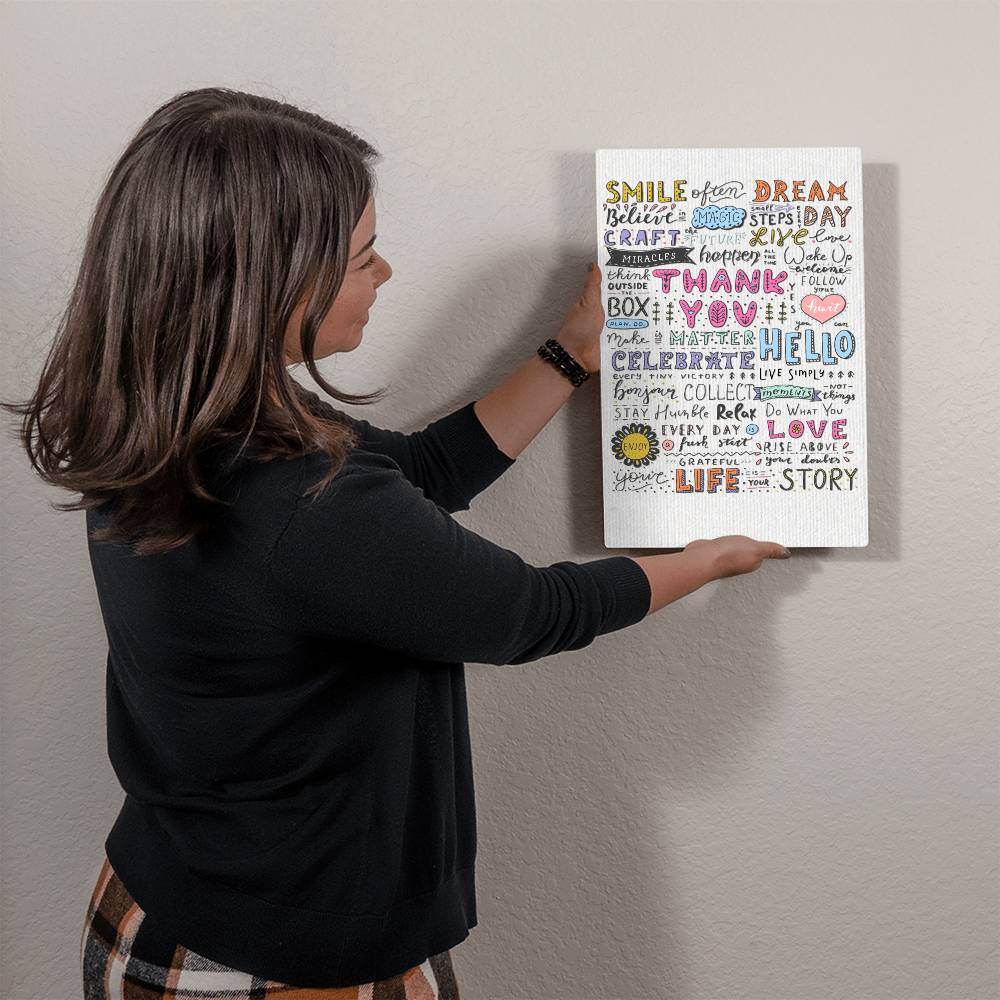 SMILE often DREAM
Believe in MAGIC SMALL STEPS EVERY DAY
CRAFT the FUTURE LIVE love
MIRACLES happen ALL THE TIME Wake Up
welcome
think OUTSIDE THE BOX THANK YOU YES FOLLOW your heart
PLAN. DO.
you can
Make it MATTER HELLO
CELEBRATE
every tiny victory LIVE SIMPLY
bonjour COLLECT moments NOT things
STAY Humble Relax DO WHAT YOU LOVE
ENJOY EVERY DAY IS a fresh start
RISE ABOVE your doubts
GRATEFUL
your LIFE IS YOUR STORY